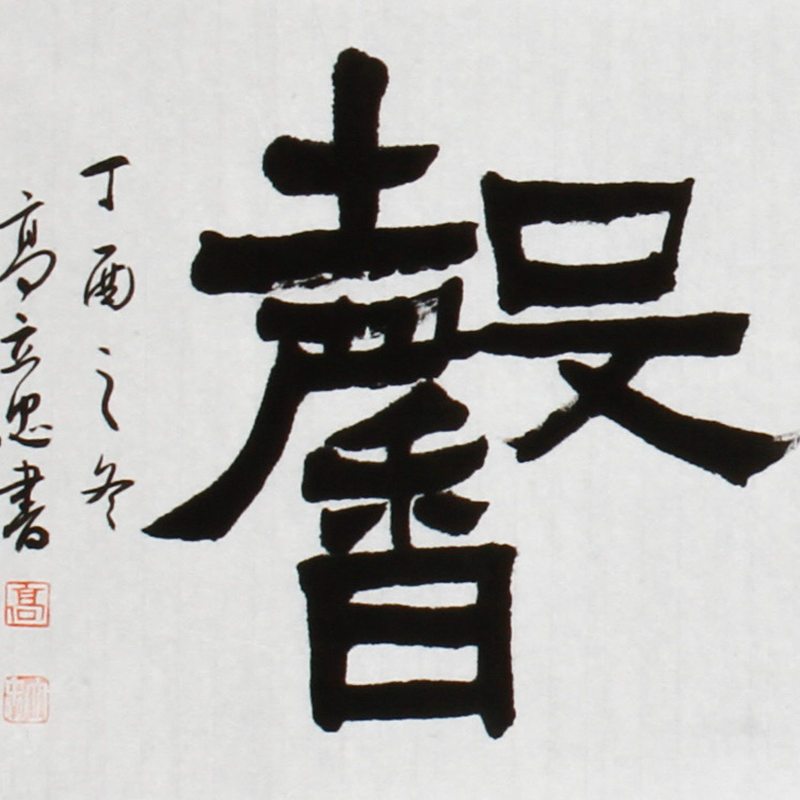 馨
丁酉之冬
高立忠書
高